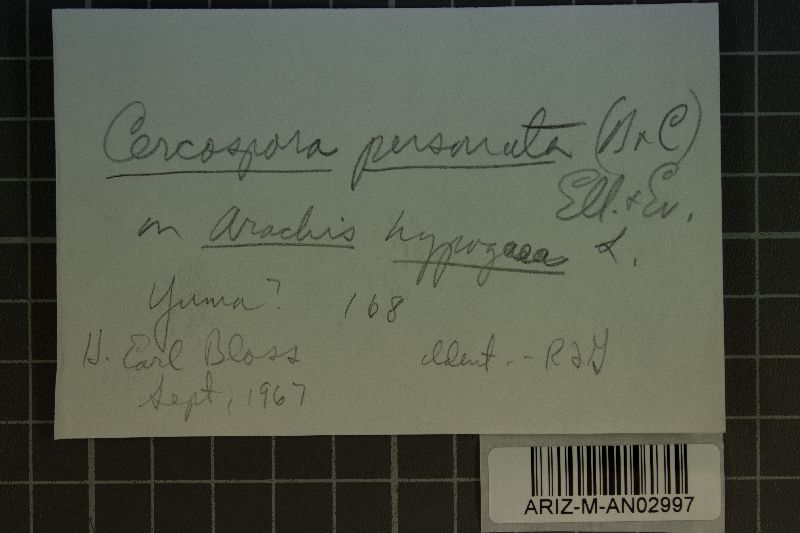 Cercospora personata (B & C)
Ell. & Ev.
on Arachis hypogaea L.
Yuma? 168
H. Earl Bloss
Ident. - RLG
Sept, 1967
ARIZ-M-AN02997